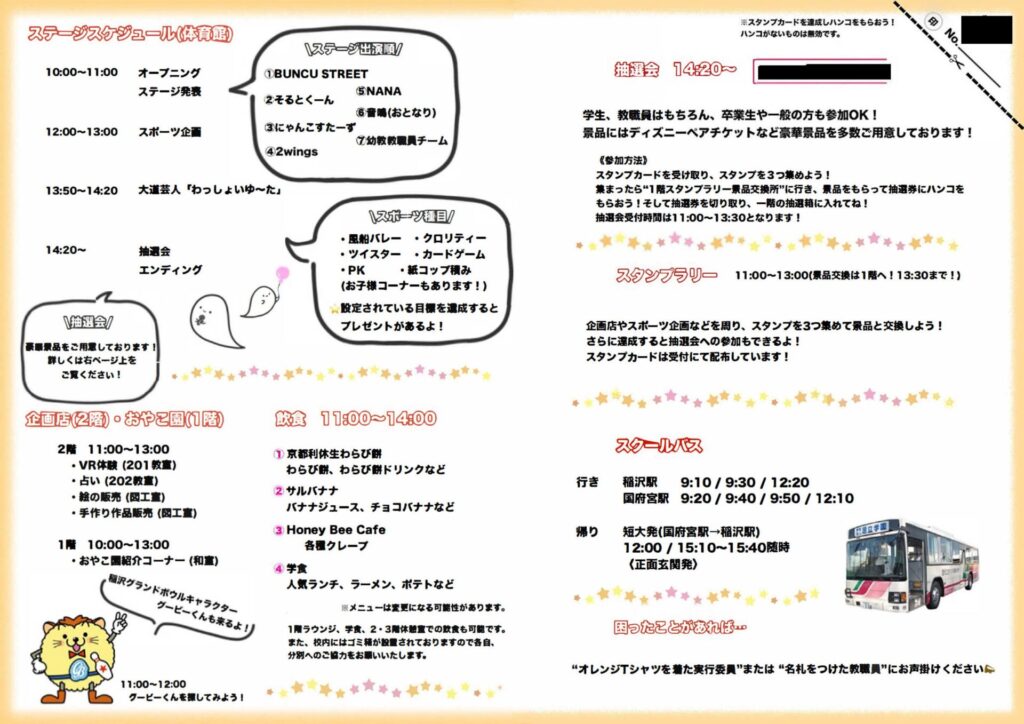 ステージスケジュール(体育館)
10:00〜11:00 オープニング
ステージ発表
12:00〜13:00 スポーツ企画
13:50〜14:20 大道芸人「わっしょいゆ〜た」
14:20〜 抽選会
エンディング
\ステージ出演順/
①BUNCU STREET
②そるとくーん
③にゃんこすたーず
④2wings
⑤NANA
⑥音鳴(おとなり)
⑦幼教教職員チーム
\スポーツ種目/
・風船バレー ・クロリティー
・ツイスター ・カードゲーム
・PK ・紙コップ積み
(お子様コーナーもあります!)
設定されている目標を達成すると
プレゼントがあるよ!
\抽選会/
豪華景品をご用意しております!
詳しくは右ページ上を
ご覧ください!
企画店(2階)・おやこ園(1階)
2階 11:00〜13:00
・VR体験 (201教室)
・占い (202教室)
・絵の販売 (図工室)
・手作り作品販売 (図工室)
1階 10:00〜13:00
・おやこ園紹介コーナー (和室)
稲沢グランドボウルキャラクター
グービーくんも来るよ!
11:00〜12:00
グービーくんを探してみよう!
飲食 11:00〜14:00
① 京都利休生わらび餅
わらび餅、わらび餅ドリンクなど
② サルバナナ
バナナジュース、チョコバナナなど
③ Honey Bee Cafe
各種クレープ
④ 学食
人気ランチ、ラーメン、ポテトなど
※メニューは変更になる可能性があります。
1階ラウンジ、学食、2・3階休憩室での飲食も可能です。
また、校内にはゴミ箱が設置されておりますので各自、
分別へのご協力をお願いいたします。
※スタンプカードを達成しハンコをもらおう!
ハンコがないものは無効です。
印
No.
抽選会 14:20〜
学生、教職員はもちろん、卒業生や一般の方も参加OK!
景品にはディズニーペアチケットなど豪華景品を多数ご用意しております!
《参加方法》
スタンプカードを受け取り、スタンプを3つ集めよう!
集まったら“1階スタンプラリー景品交換所”に行き、景品をもらって抽選券にハンコを
もらおう!そして抽選券を切り取り、一階の抽選箱に入れてね!
抽選会受付時間は11:00〜13:30となります!
スタンプラリー 11:00〜13:00(景品交換は1階へ!13:30まで!)
企画店やスポーツ企画などを周り、スタンプを3つ集めて景品と交換しよう!
さらに達成すると抽選会への参加もできるよ!
スタンプカードは受付にて配布しています!
スクールバス
行き 稲沢駅 9:10 / 9:30 / 12:20
国府宮駅 9:20 / 9:40 / 9:50 / 12:10
帰り 短大発(国府宮駅→稲沢駅)
12:00 / 15:10〜15:40随時
(正面玄関発)
困ったことがあれば…
“オレンジTシャツを着た実行委員”または “名札をつけた教職員”にお声掛けください